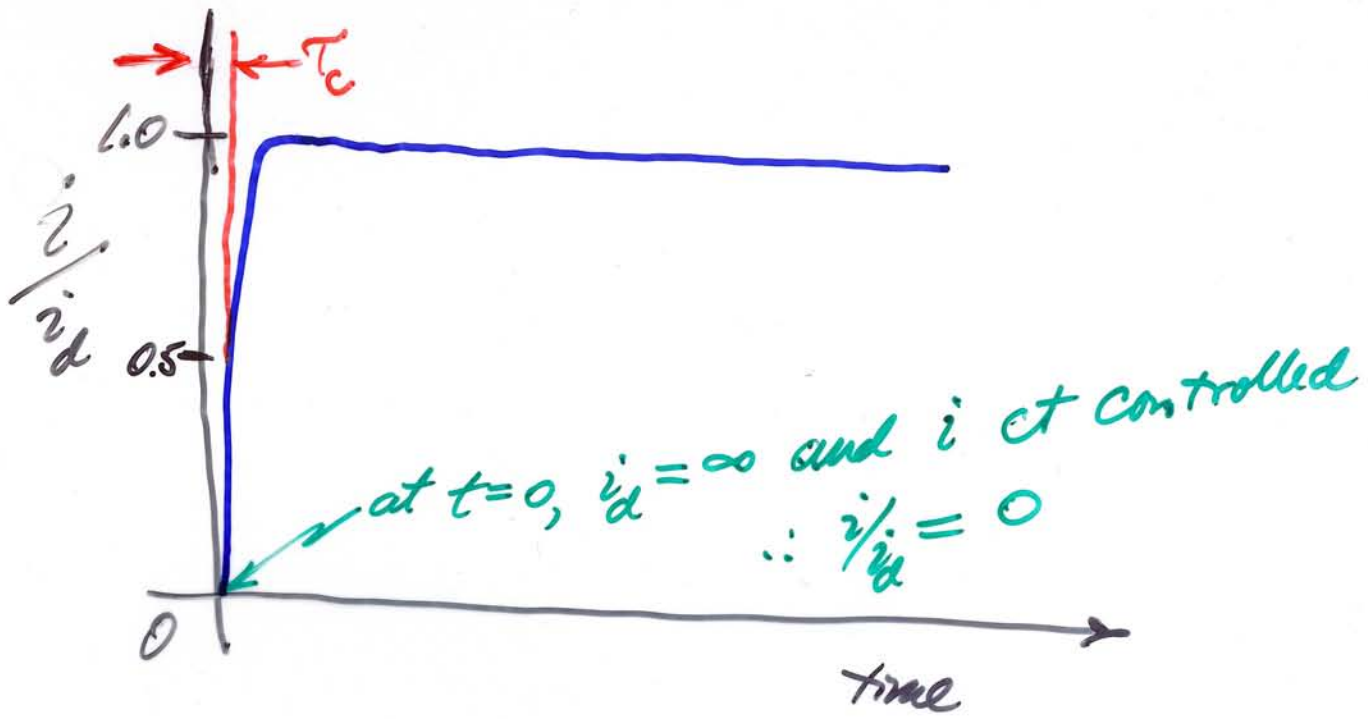 τc
1.0
i/id
0.5
at t=0, id = ∞ and i ct controlled
∴ i/id = 0
0
time